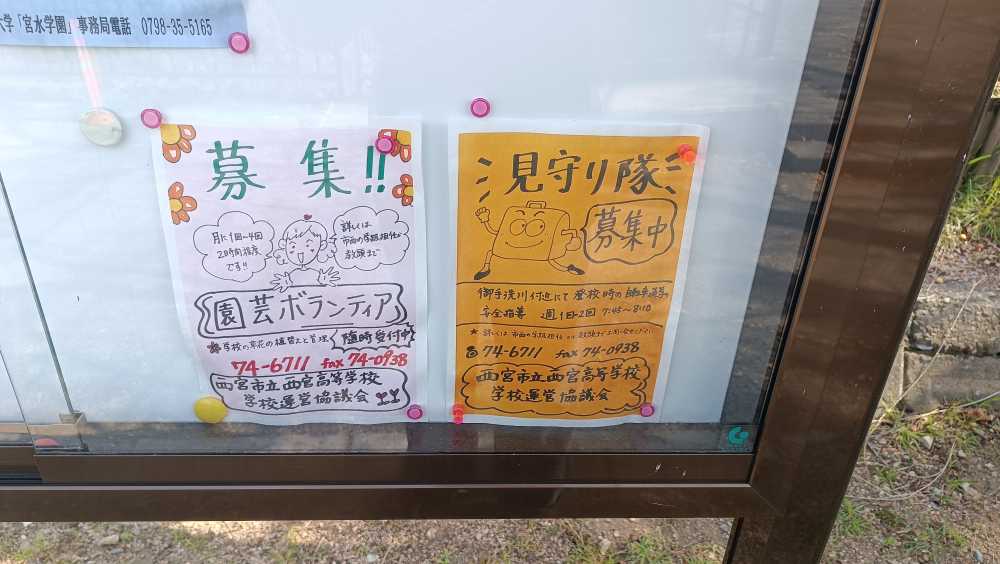 大学「宮水学園」事務局電話 0798-35-5165
募集!!
月に1回~4回
2時間程度
です!!
詳しくは
市西の学級担任か
教頭まで
園芸ボランティア
★学校の草花の植替えと管理
随時受付中
74-6711 fax 74-0938
西宮市立西宮高等学校
学校運営協議会
見守り隊
募集中
御手洗川付近にて登校時の自転車通学の
安全指導 週1回~2回 7:45~8:10
★詳しくは 市西の学級担任
74-6711 fax 74-0938
西宮市立西宮高等学校
学校運営協議会